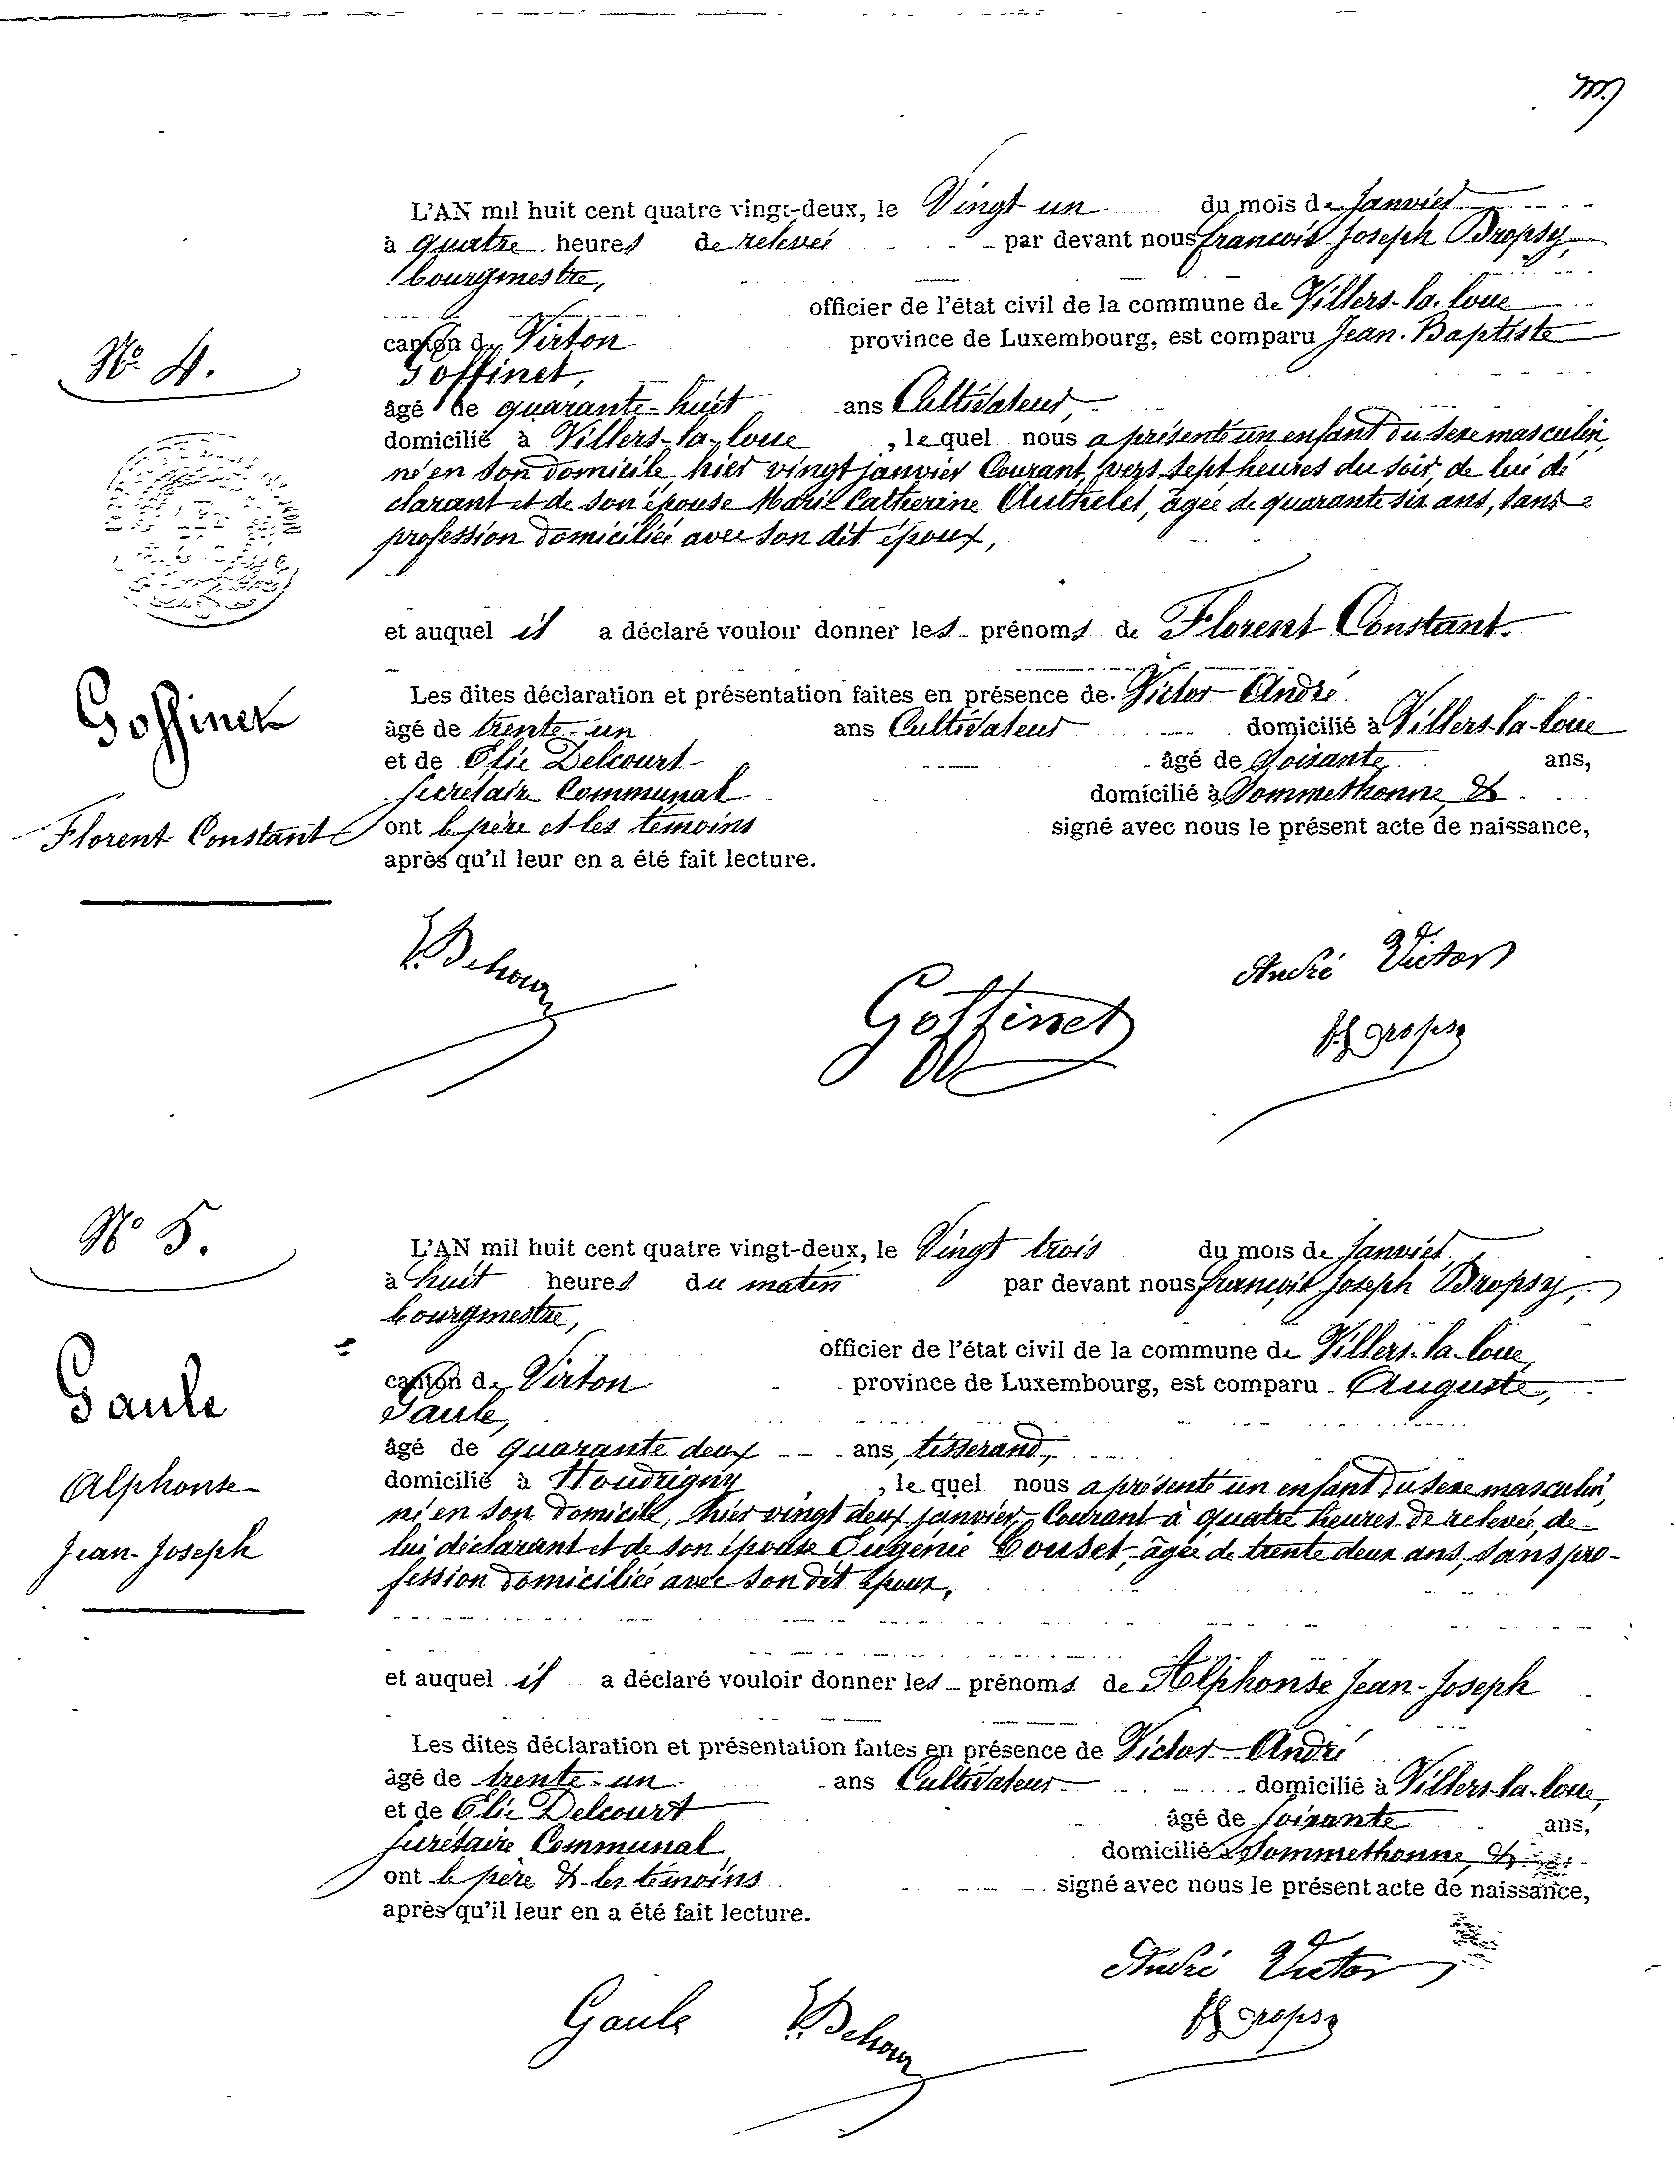 L'AN mil huit cent quatre vingt-deux, le Vingt un du mois de Janvier
à quatre heures de relevée par devant nous françois Joseph Dropsy,
bourgmestre,
officier de l'état civil de la commune de Villers-la-loue
canton de Virton province de Luxembourg, est comparu Jean-Baptiste
Goffinet,
âgé de quarante-huit ans Cultivateur,
domicilié à Villers-la-loue, le quel nous a présenté un enfant du sexe masculin,
né en son domicile, hier vingt janvier Courant, vers sept heures du soir, de lui dé
clarant et de son épouse Marie Catherine Authelet, âgée de quarante six ans, sans
profession domiciliée avec son dit époux,
et auquel il a déclaré vouloir donner les prénoms de Florent Constant.
Les dites déclaration et présentation faites en présence de Victor André
âgé de trente-un ans Cultivateur domicilié à Villers-la-loue
et de Elie Delcourt âgé de Soixante ans,
Secrétaire Communal domicilié à Sommethonne &
ont le père et les témoins signé avec nous le présent acte de naissance,
après qu'il leur en a été fait lecture.
No 4.
Goffinet
Florent Constant
Goffinet
André Victor
No 5.
Gaule
Alphonse
Jean-Joseph
L'AN mil huit cent quatre vingt-deux, le Vingt trois du mois de Janvier
à huit heures du matin par devant nous françois Joseph Dropsy,
bourgmestre,
officier de l'état civil de la commune de Villers-la-loue,
canton de Virton province de Luxembourg, est comparu Auguste,
Gaule,
âgé de quarante deux ans, tisserand,
domicilié à Houdrigny, le quel nous a présenté un enfant du sexe masculin,
né en son domicile, hier vingt deux janvier Courant à quatre heures de relevée, de
lui déclarant et de son épouse Eugénie Gouset, âgée de trente deux ans, sans pro-
fession domiciliée avec son dit époux,
et auquel il a déclaré vouloir donner les prénoms de Alphonse Jean-Joseph
Les dites déclaration et présentation faites en présence de Victor André
âgé de trente-un ans Cultivateur domicilié à Villers-la-loue,
et de Elie Delcourt âgé de soixante ans,
secrétaire Communal domicilié à Sommethonne, &
ont le père & les témoins signé avec nous le présent acte de naissance,
après qu'il leur en a été fait lecture.
André Victor
Gaule